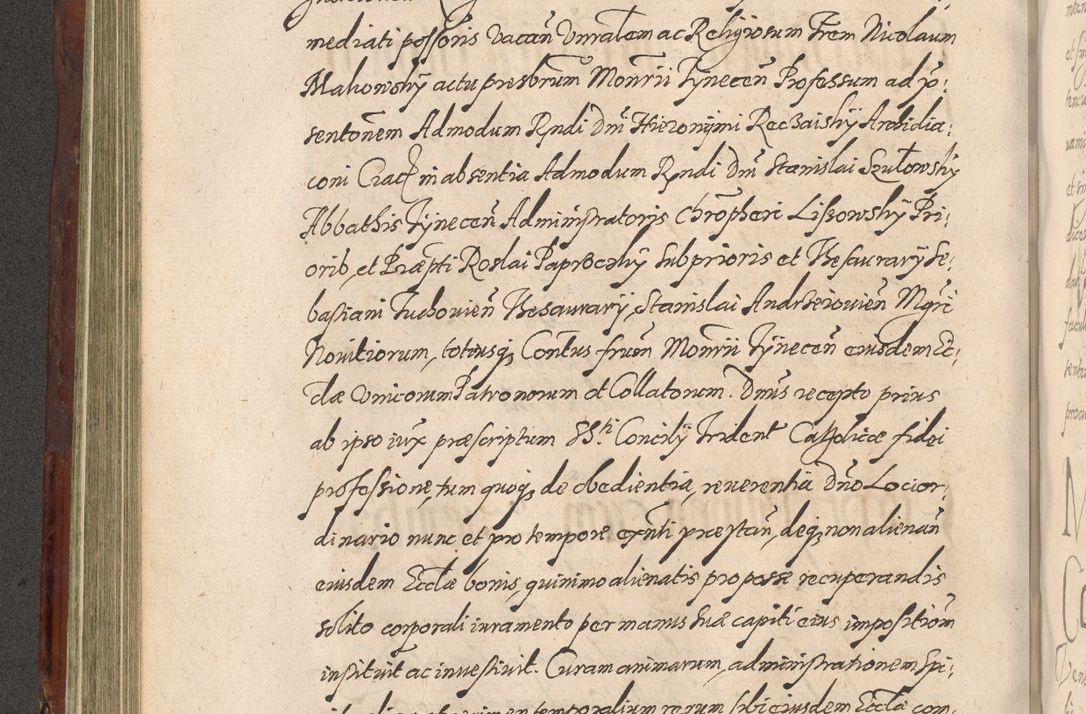 mediati possoris vacan̄ Vnratem ac Religiosum Frem Nicolaum
Makowskÿ actu presbrum Monrii Tÿnecen̄ Professum ad p̄:
sentonem Admodum Rndi Dni Hieronymi Reczaiskÿ Archidia:
coni Crac in absentia Admodum Rndi Dni Stanislai Szułowskÿ
Abbathis Tÿnecen̄ Administratoris Chrōpheri Lissowskÿ Pri:
oris, et Præpti Roslai Paproczkÿ Subprioris et Thesaurarÿ Se:
bastiani Tuchouien̄ Thesaurarÿ, Stanislai Andrzeiouien̄ Mgri
Nouitiorum, totiusq, Contus frum Monrii Tÿnecen̄ eiusdem Ec:
clæ vnicorum Patronorum et Collatorum. Dnus recepto prius
ab ipso iux præscriptum SS.ti Concilÿ Trident Catholicæ fidei
professione, tum quoq, de obedientia, reuerentia Dno Locior:
dinario nunc et pro tempore exnti præstan̄, deq, non alienan̄
eiusdem Ecclæ bonis, quinimo alienatis pro posse recuperandis
solito corporali iuramento per manus suæ capiti eius impositiom̄
instituit ac inuestiuit. Curam animarum, administrationem Spi: